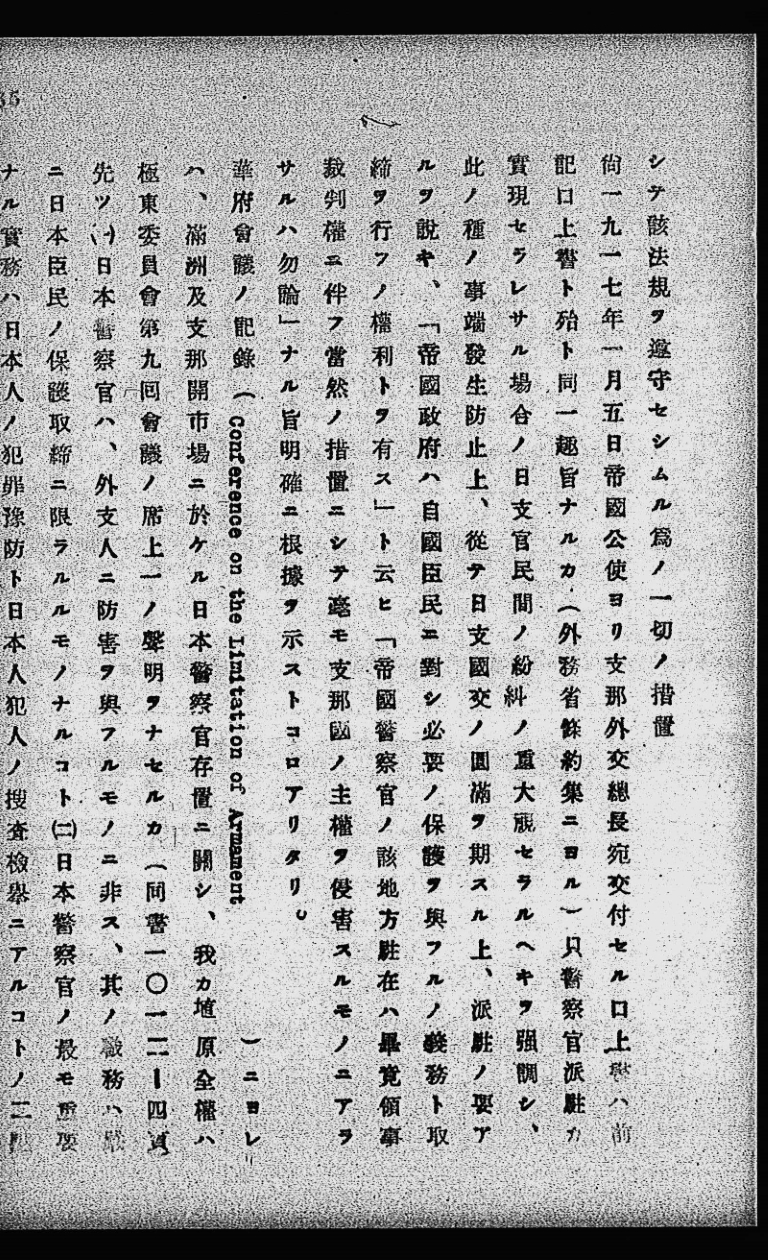 シテ該法規ヲ遵守セシムル爲ノ一切ノ措置
尙一九一七年一月五日帝國公使ヨリ支那外交總長宛交付セル口上書ハ前
記口上書ト殆ト同一趣旨ナルカ、(外務省條約集ニヨル)只警察官派駐カ
實現セラレサル場合ノ日支官民間ノ紛糾ノ重大視セラルヘキヲ强調シ、
此ノ種ノ事端發生防止上、從テ日支國交ノ圓滿ヲ期スル上、派駐ノ要ア
ルヲ說キ、「帝國政府ハ自國臣民ニ對シ必要ノ保護ヲ與フルノ義務ト取
締ヲ行フノ權利トヲ有ス」ト云ヒ「帝國警察官ノ該地方駐在ハ畢竟領事
裁判權ニ伴フ當然ノ措置ニシテ毫モ支那國ノ主權ヲ侵害スルモノニアラ
サルハ勿論」ナル旨明確ニ根據ヲ示ストコロアリタリ。
華府會議ノ記錄(Conference on the Limitation of Armament)ニヨレ
ハ、滿洲及支那開市場ニ於ケル日本警察官存置ニ關シ、我カ埴原全權ハ
極東委員會第九回會議ノ席上一ノ聲明ヲナセルカ(同書一〇一二ー四頁
先ツ(一)日本警察官ハ、外支人ニ防害ヲ與フルモノニ非ス、其ノ職務ハ嚴
ニ日本臣民ノ保護取締ニ限ラルルモノナルコト(二)日本警察官ノ最モ重要
ナル實務ハ日本人ノ犯罪豫防ト日本人犯人ノ搜査檢擧ニアルコトノ二點